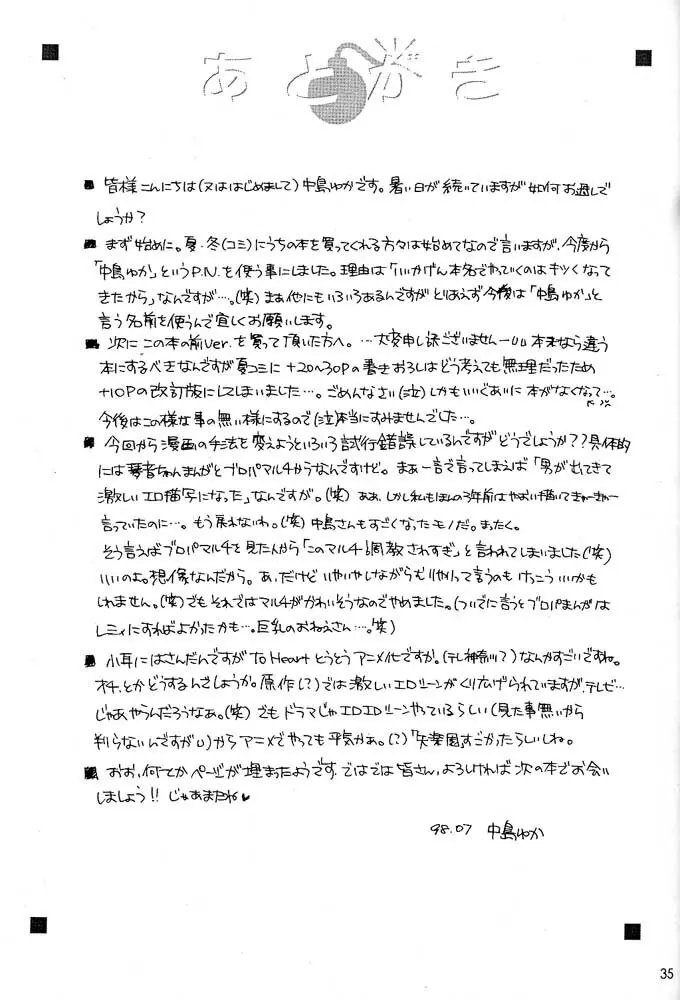 あとがき
■ 皆様こんにちは(又ははじめまして)中島ゆかです。暑い日が続いていますが如何お過しで
しょうか?
■ まず始めに。夏・冬(コミ)にうちの本を買ってくれる方々は始めてなので言いますが、今度から
「中島ゆか」というP.N.を使う事にしました。理由は「いいかげん本名でやっていくのはキツくなって
きたから」なんですが…。(笑)まぁ他にもいろいろあるんですがとりあえず今後は「中島ゆか」と
言う名前を使うんで宜しくお願いします。
■ 次にこの本の前Ver.を買って頂いた方へ。…大変申し訳ございません 本来なら違う
本にするべきなんですが夏コミに+20〜30Pの書きおろしはどう考えても無理だったため
+10Pの改訂版にしてしまいました…。ごめんなさい(泣)しかもいいぐあいに本がなくなって…。
今後はこの様な事の無い様にするので(泣)本当にすみませんでした…。
■ 今回から漫画の手法を変えようといろいろ試行錯誤しているんですがどうでしょうか??具体的
には琴音ちゃんまんがとブロパマルチからなんですけど。まぁ一言で言ってしまえば「男が出てきて
激しいエロ描写になった」なんですが。(笑)ああ、しかし私もほんの3年前はやおい描いてきゃーきゃー
言っていたのに…。もう戻れないわ。(笑)中島さんもすごくなったモノだ。まったく。
そう言えばブロパマルチを見た人から「このマルチ調教されすぎ」と言われてしまいました(笑)
いいのよ。想像なんだから。あ、だけどいやいやしながらむりやりって言うのもけっこういいかも
しれません。(笑)でもそれではマルチがかわいそうなのでやめました。(ついでに言うとブロパまんがは
レミィにすればよかったかも…。巨乳のおねえさん…。笑)
■ 小耳にはさんだんですがTo Heartとうとうアニメ化ですか。(テレ神奈川?)なんかすごいですね。
オチ、とかどうするんでしょうか。原作(?)では激しいエロシーンがくり広げられていますが、テレビ…
じゃあやらんだろうなぁ。(笑)でもドラマじゃエロエロシーンやっているらしい(見た事無いから
判らないんですが)からアニメでやっても平気かぁ。(?)「失楽園」すごかったらしいしね。
■ おお、何とかページが埋まったようです。ではでは皆さん、よろしければ次の本でお会い
しましょう!!じゃあまたね♥
98.07 中島ゆか
35